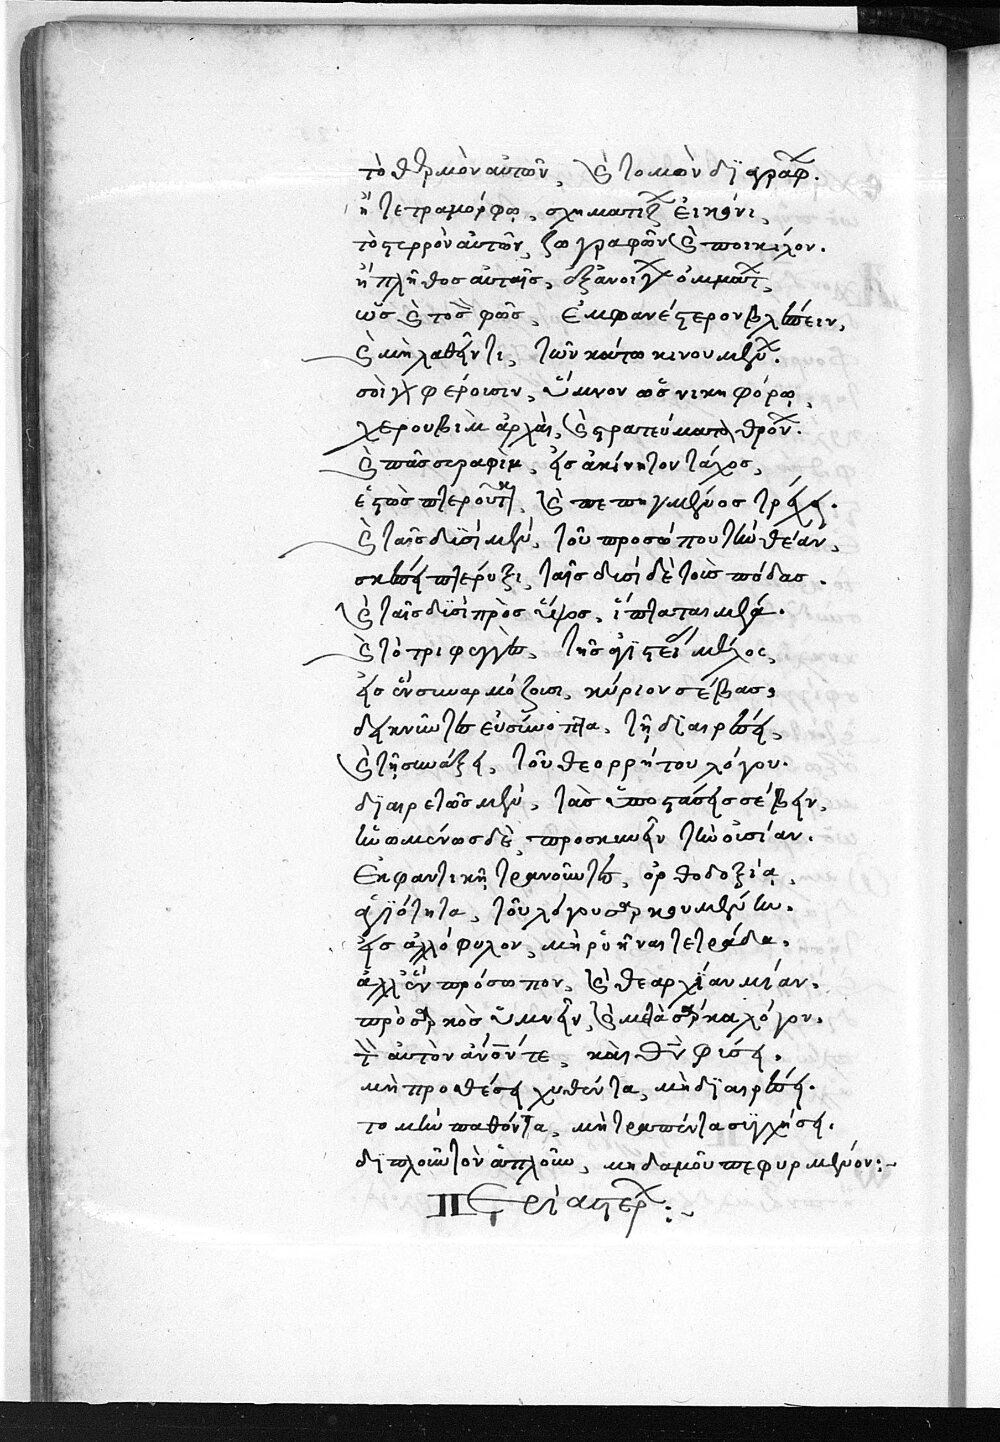 τὸ θερμὸν αὐτῶν, καὶ τομὸν διαγράφει.
ἢ τετραμόρφῳ, σχηματίζει εἰκόνι,
τὸ στερρὸν αὐτῶν, ζωγραφῶν καὶ ποικίλον.
ἢ πλῆθος αὐταῖς, ἐξανοίγει ὀμμάτων,
ὡς καὶ τὸ φῶς, ἐμφανέστερον βλέπειν,
καὶ μὴ λαθεῖν τι, τῶν κάτω κινουμένων.
σοὶ γὰρ φέρουσιν, ὕμνον ὡς νικηφόρῳ,
χερουβὶμ ἀρχαὶ, καὶ στρατεύματα θρόνων.
καὶ πᾶν σεραφὶμ, εἰς ἀκίνητον τάχος,
ἑστὼς πτεροῦται, καὶ πεπηγμένος τρέχει.
καὶ ταῖς δυσὶ μὲν, τοῦ προσώπου τὴν θέαν,
σκέπει πτέρυξι, ταῖς δυσὶ δὲ τοὺς πόδας.
καὶ ταῖς δυσὶ πρὸς ὕψος, ἵπταται μέγα.
καὶ τὸ τριφεγγὲς, τῆς ἁγιστείας μέλος,
εἰς ἓν συναρμόζουσι, κύριον σέβας,
δεικνῦντες εὐσύνοπτα, τῇ διαιρέσει,
καὶ τῇ συνάξει, τοῦ θεορρήτου λόγου.
διαιρετῶς μὲν, τὰς ὑποστάσεις σέβειν,
ἡνωμένως δὲ, προσκυνεῖν τὴν οὐσίαν.
ἐκφαντικῇ τρανοῦντες, ὀρθοδοξίᾳ,
ἁγιότητα, τοῦ λόγου σαρκουμένου.
εἰς ἀλλόφυλον, μὴ ῥυῆναι τετράδα.
ἀλλ' ἓν πρόσωπον, καὶ θεαρχίαν μίαν.
πρὸ σαρκὸς ὑμνεῖν, καὶ μετὰ σάρκα λόγον.
τὸν αὐτὸν ἀνόν τε, καὶ θν φύσει.
μὴ προσθέσει χυθέντα, μὴ διαιρέσει.
τομὴν παθόντα, μὴ τραπέντα συγχύσει.
διπλοῦν τὸν ἁπλοῦν, μηδαμοῦ πεφυρμένον:~
Περὶ ἀστέρων:~